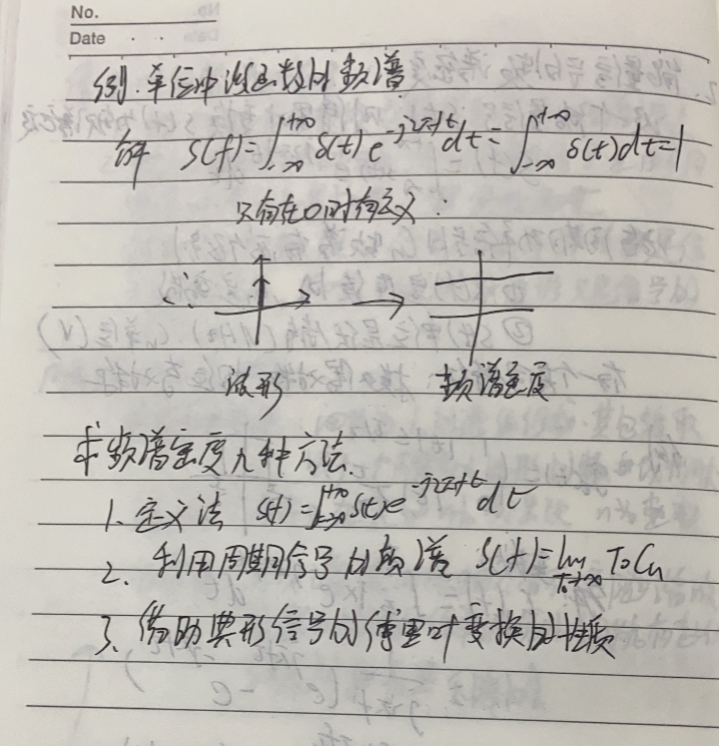 No.
Date
例.单位冲激函数的频谱
解 S(f)=∫_{-∞}^{+∞} δ(t) e^{-j2πft}dt=∫_{-∞}^{+∞} δ(t)dt=1
只有在0时有定义:
∴ →
波形 频谱密度
求频谱密度几种方法.
1. 定义法 S(f)=∫_{-∞}^{+∞} s(t)e^{-j2πft}dt
2. 利用周期信号的频谱 S(f)=lim_{T₀→∞} T₀Cn
3. 借助典形信号的傅里叶变换的性质